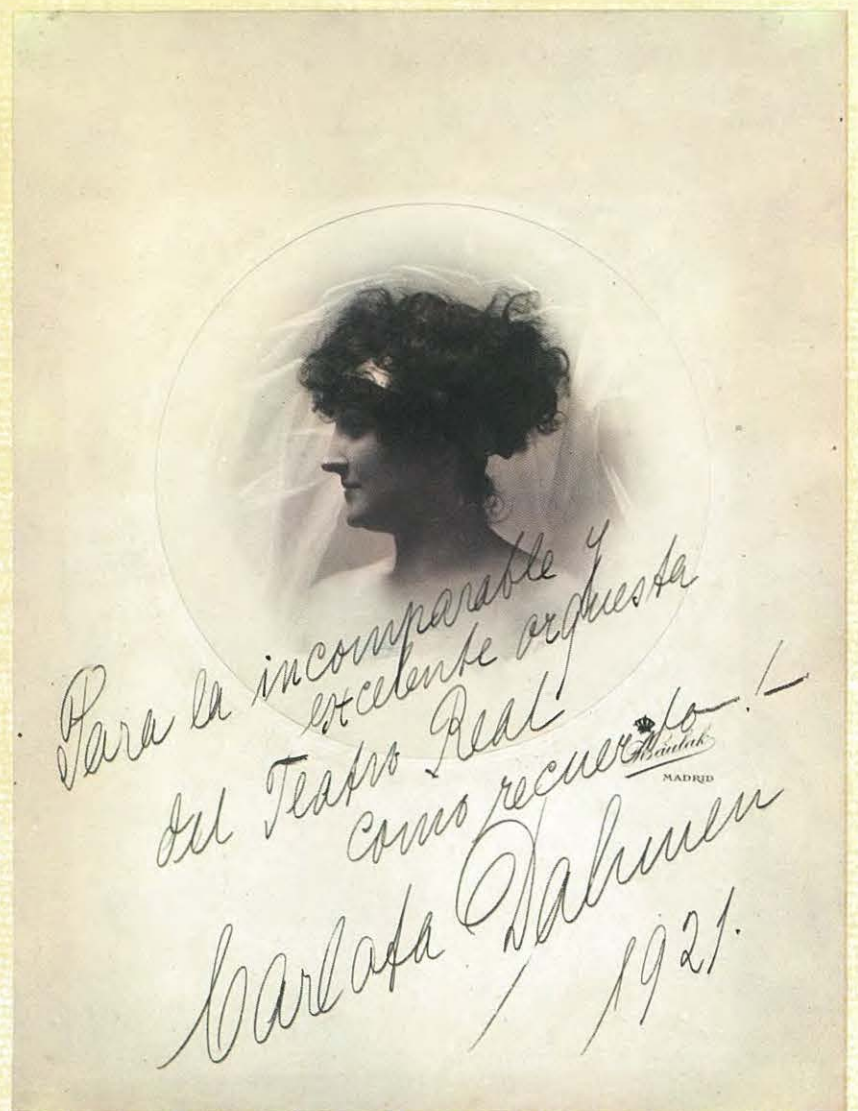 Para la incomparable y
excelente orquesta
del Teatro Real
como recuerdo!
Kaulak
MADRID
Carlota Dahmen
1921.